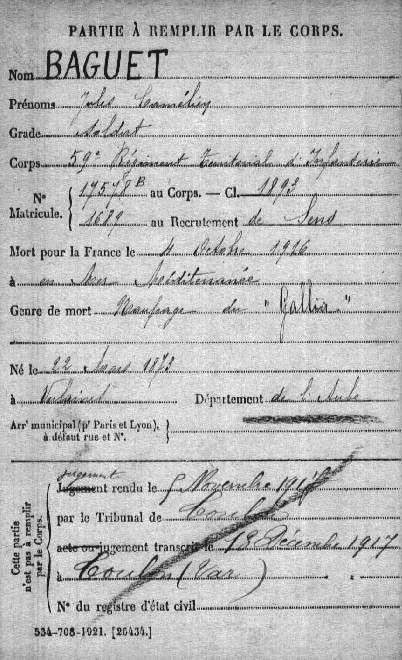 PARTIE À REMPLIR PAR LE CORPS.
Nom BAGUET
Prénoms Jules
Grade Soldat
Corps 59e Régiment Territorial d'Infanterie
Nº Matricule. { 17578 B au Corps. — Cl. 1893
1629 au Recrutement de Sens
Mort pour la France le 4 Octobre 1916
à en Mer Méditerranée
Genre de mort Naufrage du "Gallia"
Né le 22 Mars 1873
à Département de l'Aube
Arrt municipal (pr Paris et Lyon), à défaut rue et Nº. }
Cette partie n'est pas à remplir par le Corps.
jugement
Jugement rendu le 5 Novembre 1917
par le Tribunal de Toulon
acte ou jugement transcrit le 12 Décembre 1917
à Toulon (Var)
Nº du registre d'état civil
534-708-1921. [26434.]